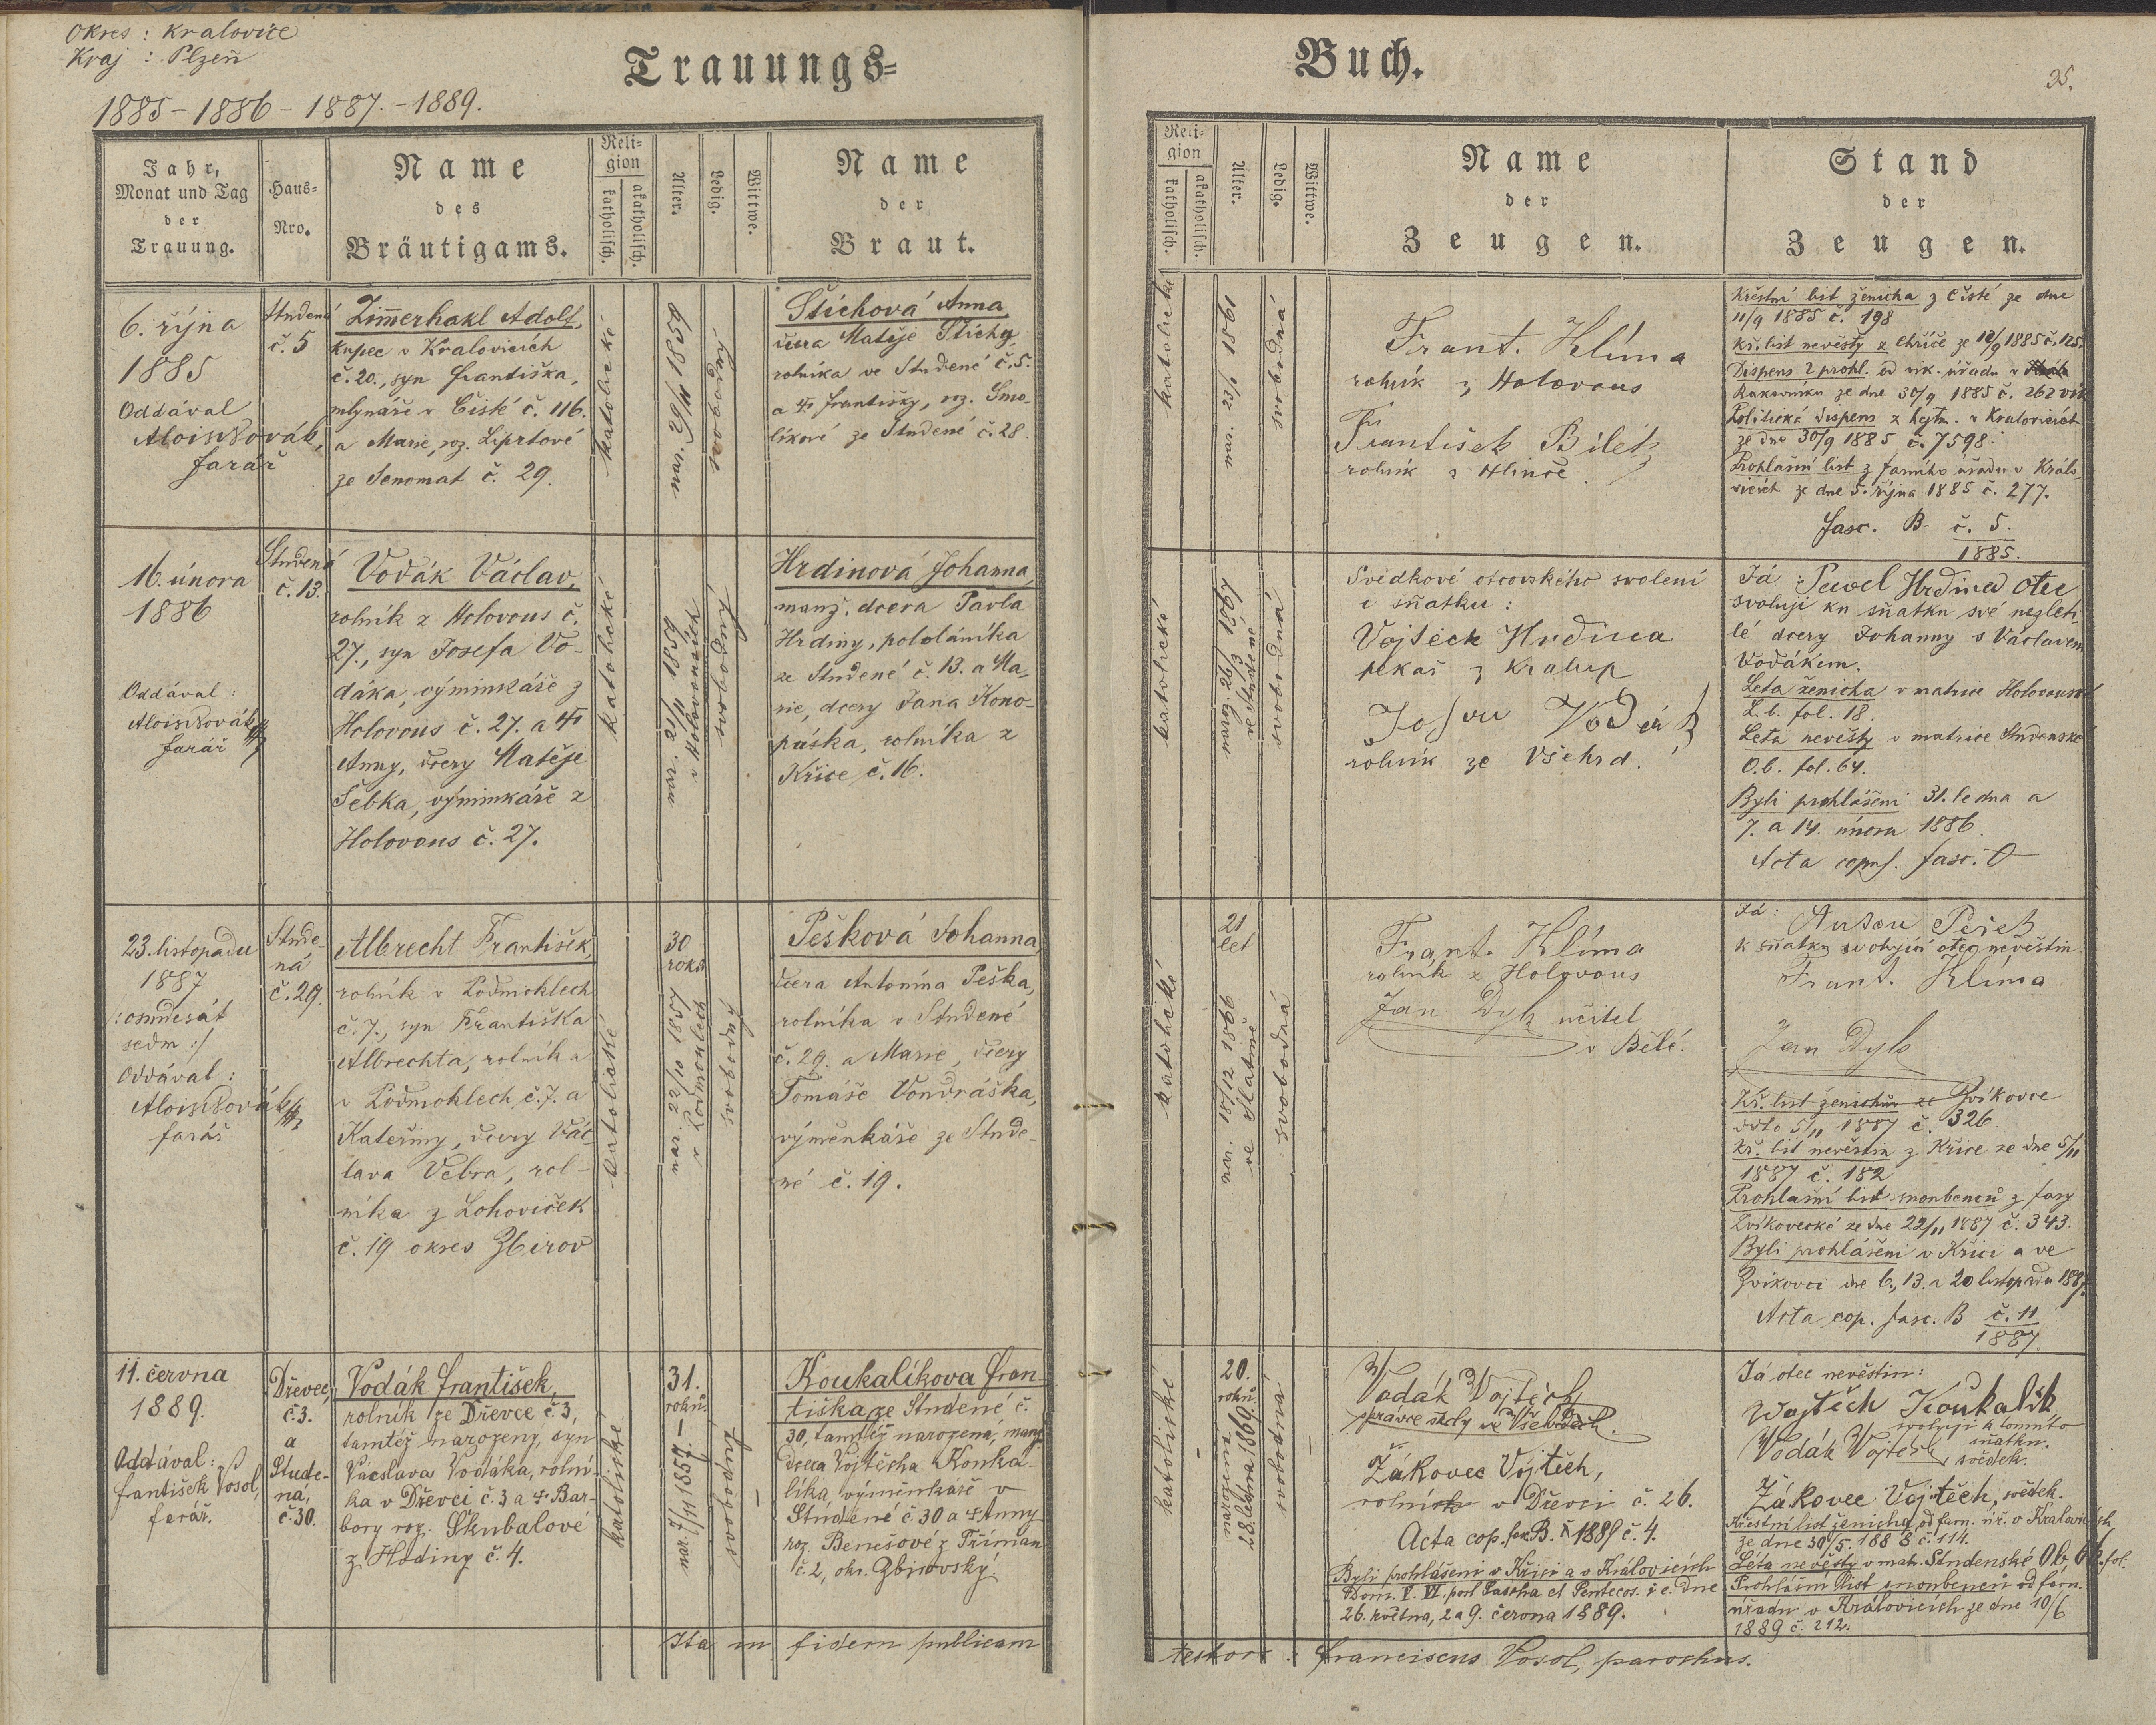 Okres : Kralovice
Kraj : Plzeň
1885 - 1886 - 1887. - 1889.
Trauungs=
Buch.
35.
Jahr,
Monat und Tag
der
Trauung.
Haus=
Nro.
Name
des
Bräutigams.
Reli=
gion
katholisch.
akatholisch.
Alter.
Ledig.
Wittwe.
Name
der
Braut.
Reli=
gion
katholisch.
akatholisch.
Alter.
Ledig.
Wittwe.
Name
der
Zeugen.
Stand
der
Zeugen.
6. října
1885
Oddával
Alois Novák,
farář
Studená
č. 5
Zimerhakl Adolf,
kupec v Kralovicích
č. 20., syn Františka,
mlynáře v Čisté č. 116.
a Marie, roz. Liprtové
ze Senomat č. 29.
katolické
svobodný
Štichová Anna,
dcera Matěje Štichy,
rolníka ve Studené č. 5.
a Františky, roz. Smo-
líkové ze Studené č. 28.
katolické
svobodná
Frant. Klíma
rolník z Holovous
František Bílek
rolník z Hlince.
Křestní list ženicha z Čisté ze dne
11/9 1885 č. 198
Kř. list nevěsty z Chříče ze 12/9 1885 č. 125.
Dispens 2 prohl. od vik. úřadu v
Rakovníku ze dne 30/9 1885 č. 262 vik
Politická dispens z hejtm. v Kralovicích
ze dne 30/9 1885 č. 7598.
Prohlášní list z farního úřadu v Kralo-
vicích ze dne 5. října 1885 č. 277.
fasc. B. č. 5.
1885.
16. února
1886
Oddával :
Alois Novák
farář
Studená
č. 13.
Vodák Václav,
rolník z Holovous č.
27., syn Josefa Vo-
dáka, výminkáře z
Holovous č. 27. a
Anny, dcery Matěje
Šebka, výminkáře z
Holovous č. 27.
katolické
v Holovousích
svobodný
Hrdinová Johanna,
manž. dcera Pavla
Hrdiny, pololáníka
ze Studené č. 13. a Ma-
rie, dcery Jana Kono-
páska, rolníka z
Křice č. 16.
katolické
ve Studené
svobodná
Svědkové otcovského svolení
i sňatku :
Vojtěch Hrdina
pekař z Kralup
Josef Vodák
rolník ze Všehrd.
Já Pavel Hrdina otec
svoluji ku sňatku své nezleti-
lé dcery Johanny s Václavem
Vodákem.
Leta ženicha v matrice Holovouské
L. b. fol. 18.
Leta nevěsty v matrice Studenské
O. b. fol. 64.
Byli prohlášeni 31. ledna a
7. a 14. února 1886.
Acta copul. fasc. O
23. listopadu
1887
/: osmdesát
sedm :/
Oddával :
Alois Novák
farář
Stude-
ná
č. 29.
Albrecht František,
rolník v Podmoklech
č. 7., syn Františka
Albrechta, rolníka
v Podmoklech č. 7. a
Kateřiny, dcery Vác-
lava Vebra, rol-
níka z Lohoviček
č. 19 okres Zbirov
katolické
30
roků
nar. 22/10 1857
v Podmoklech
svobodný
Pešková Johanna,
dcera Antonína Peška,
rolníka v Studené
č. 29. a Marie, dcery
Tomáše Vondráška,
výměnkáře ze Stude-
né č. 19.
katolické
21
let
nar. 18/12 1866
ve Slatině
svobodná
Frant. Klíma
rolník z Holovous
Jan Dyk učitel
v Bělé.
Já :
Anton Pešek
k sňatku svolující otec nevěstin
Frant. Klíma
Jan Dyk
Kř. list ženichův ze Zvíkovce
ddto 5/11 1887 č. 326.
Kř. list nevěstin z Křice ze dne 5/11
1887 č. 182
Prohlašní list snoubenců z fary
Zvíkovecké ze dne 22/11 1887 č. 343.
Byli prohlášeni v Křici a ve
Zvíkovci dne 6., 13. a 20 listopadu 1887.
Acta cop. fasc. B č. 11
1887
11. června
1889.
Oddával :
František Vosol,
farář.
Dřevec,
č. 3.
a
Stude-
ná,
č. 30.
Vodák František,
rolník ze Dřevce č 3,
tamtéž narozený, syn
Václava Vodáka, rolní-
ka v Dřevci č. 3 a Bar-
bory roz. Škubalové
z Hodiny č. 4.
katolické
31.
roků.
nar. 7/11 1857.
svobodný
Koukalíkova Fran-
tiška ze Studené č.
30, tamtéž narozená, manž.
dcera Vojtěcha Kouka-
líka výměnkáře v
Studené č. 30 a Anny
roz. Benešové z Tříman
č. 2, okr. Zbirovský.
katolické
20.
roků.
svobodná
Vodák Vojtěch
správce školy ve Všehrdech.
Žákovec Vojtěch,
rolník v Dřevci č. 26.
Acta cop. fsc. B. 1889 č. 4.
Byli prohlášeni v Křici a v Kralovicích
Dom. V. VI. post Pascha et Pentecos. i. e. dne
26. května, 2 a 9. června 1889.
Já otec nevěstin :
Vojtěch Koukalík
svoluji k tomuto
sňatku.
Vodák Vojtěch, svědek.
Žákovec Vojtěch, svědek.
Křestní list ženicha od farn. úř. v Kralovicích
ze dne 30/5. 1888 č. 114.
Léta nevěsty v matr. Studenské O. b. fol.
Prohlášní list snoubenců od farn.
úřadu v Kralovicích ze dne 10/6
1889 č. 212.
Ita in fidem publicam
testor : Franciscus Vosol, parochus.